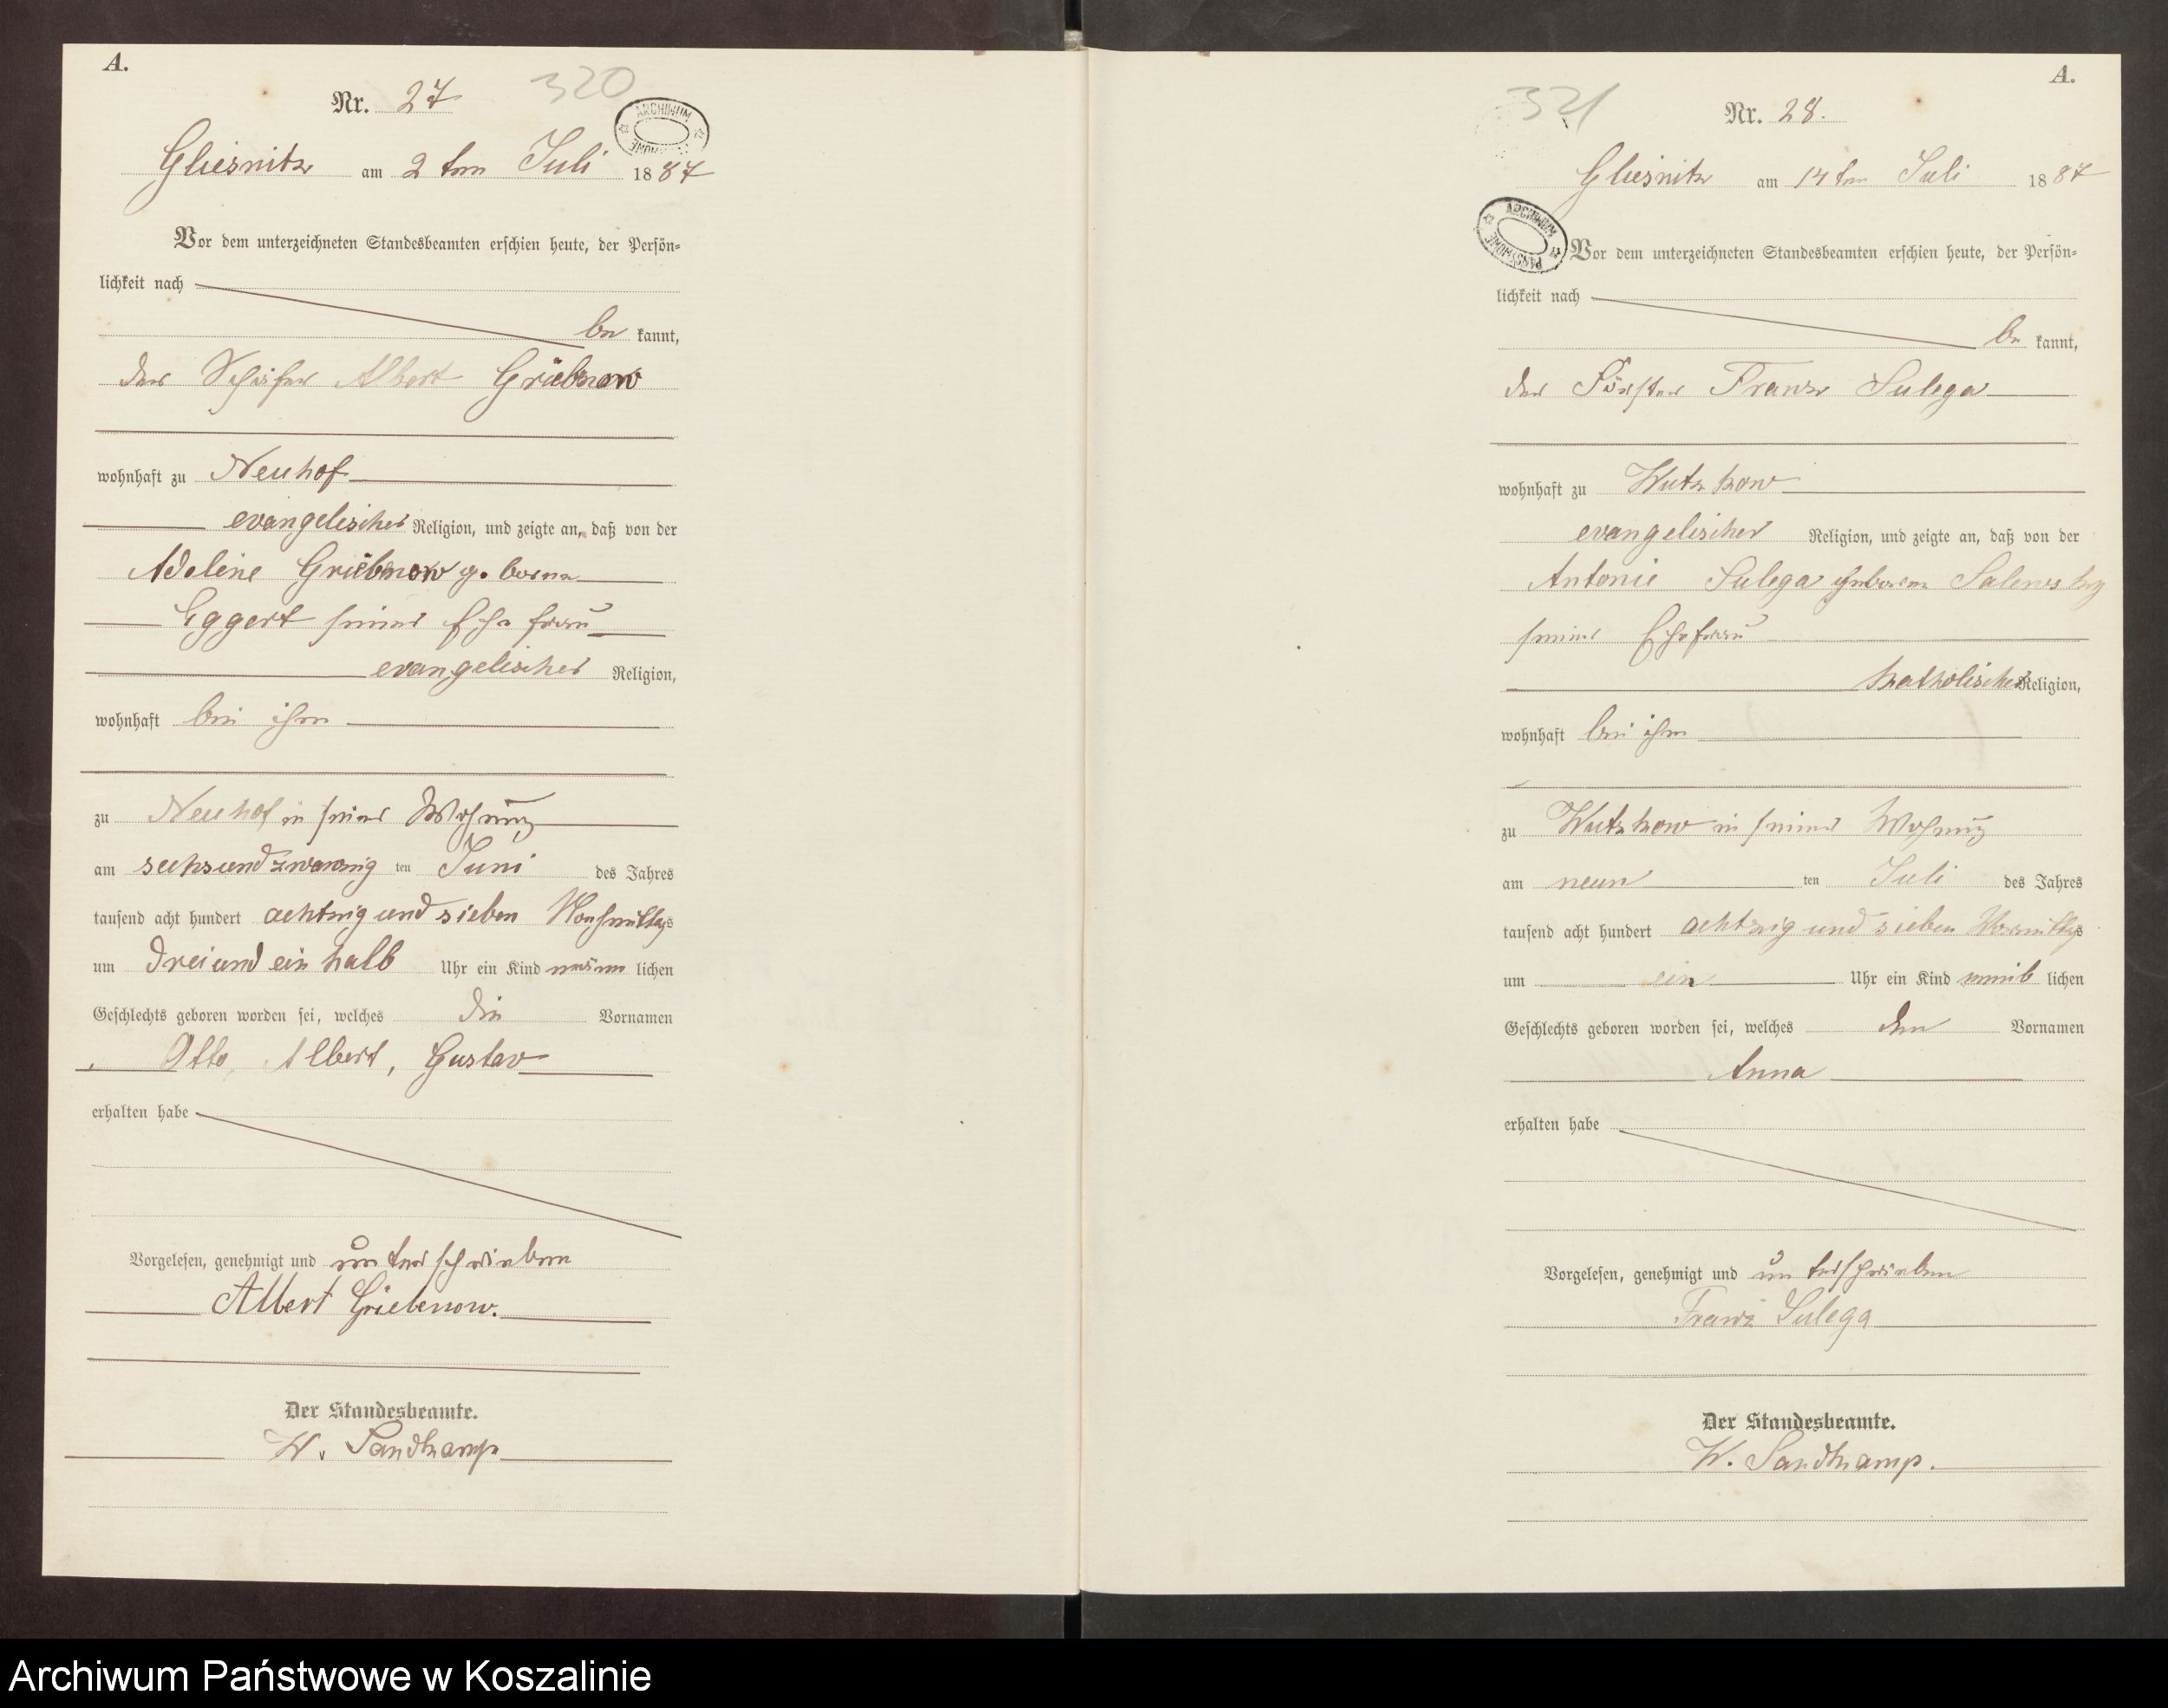 A.
320
Nr. 27
ARCHIWUM
Gliesnitz am 2ten Juli 1887
Vor dem unterzeichneten Standesbeamten erschien heute, der Persön=
lichkeit nach
be kannt,
der Schäfer Albert Griebnow
wohnhaft zu Neuhof
evangelischer Religion, und zeigte an, daß von der
Adeline Griebnow geborne
Eggert seiner Ehefrau
evangelischer Religion,
wohnhaft bei ihm
zu Neuhof in seiner Wohnung
am sechsundzwanzig ten Juni des Jahres
tausend acht hundert achtzig und sieben Nachmittags
um drei und ein halb Uhr ein Kind männ lichen
Geschlechts geboren worden sei, welches die Vornamen
Otto, Albert, Gustav
erhalten habe
Vorgelesen, genehmigt und unterschrieben
Albert Griebenow.
Der Standesbeamte.
W. Sandkamp
A.
321
Nr. 28.
Gliesnitz am 14ten Juli 1887
ARCHIWUM PAŃSTWOWE
Vor dem unterzeichneten Standesbeamten erschien heute, der Persön=
lichkeit nach
be kannt,
der Förster Franz Sulega
wohnhaft zu Wutzkow
evangelischer Religion, und zeigte an, daß von der
Antonie Sulega geborene Salewsky
seiner Ehefrau
katholischer Religion,
wohnhaft bei ihm
zu Wutzkow in seiner Wohnung
am neun ten Juli des Jahres
tausend acht hundert achtzig und sieben Vormittags
um ein Uhr ein Kind weib lichen
Geschlechts geboren worden sei, welches den Vornamen
Anna
erhalten habe
Vorgelesen, genehmigt und unterschrieben
Franz Sulega
Der Standesbeamte.
W. Sandkamp.
Archiwum Państwowe w Koszalinie